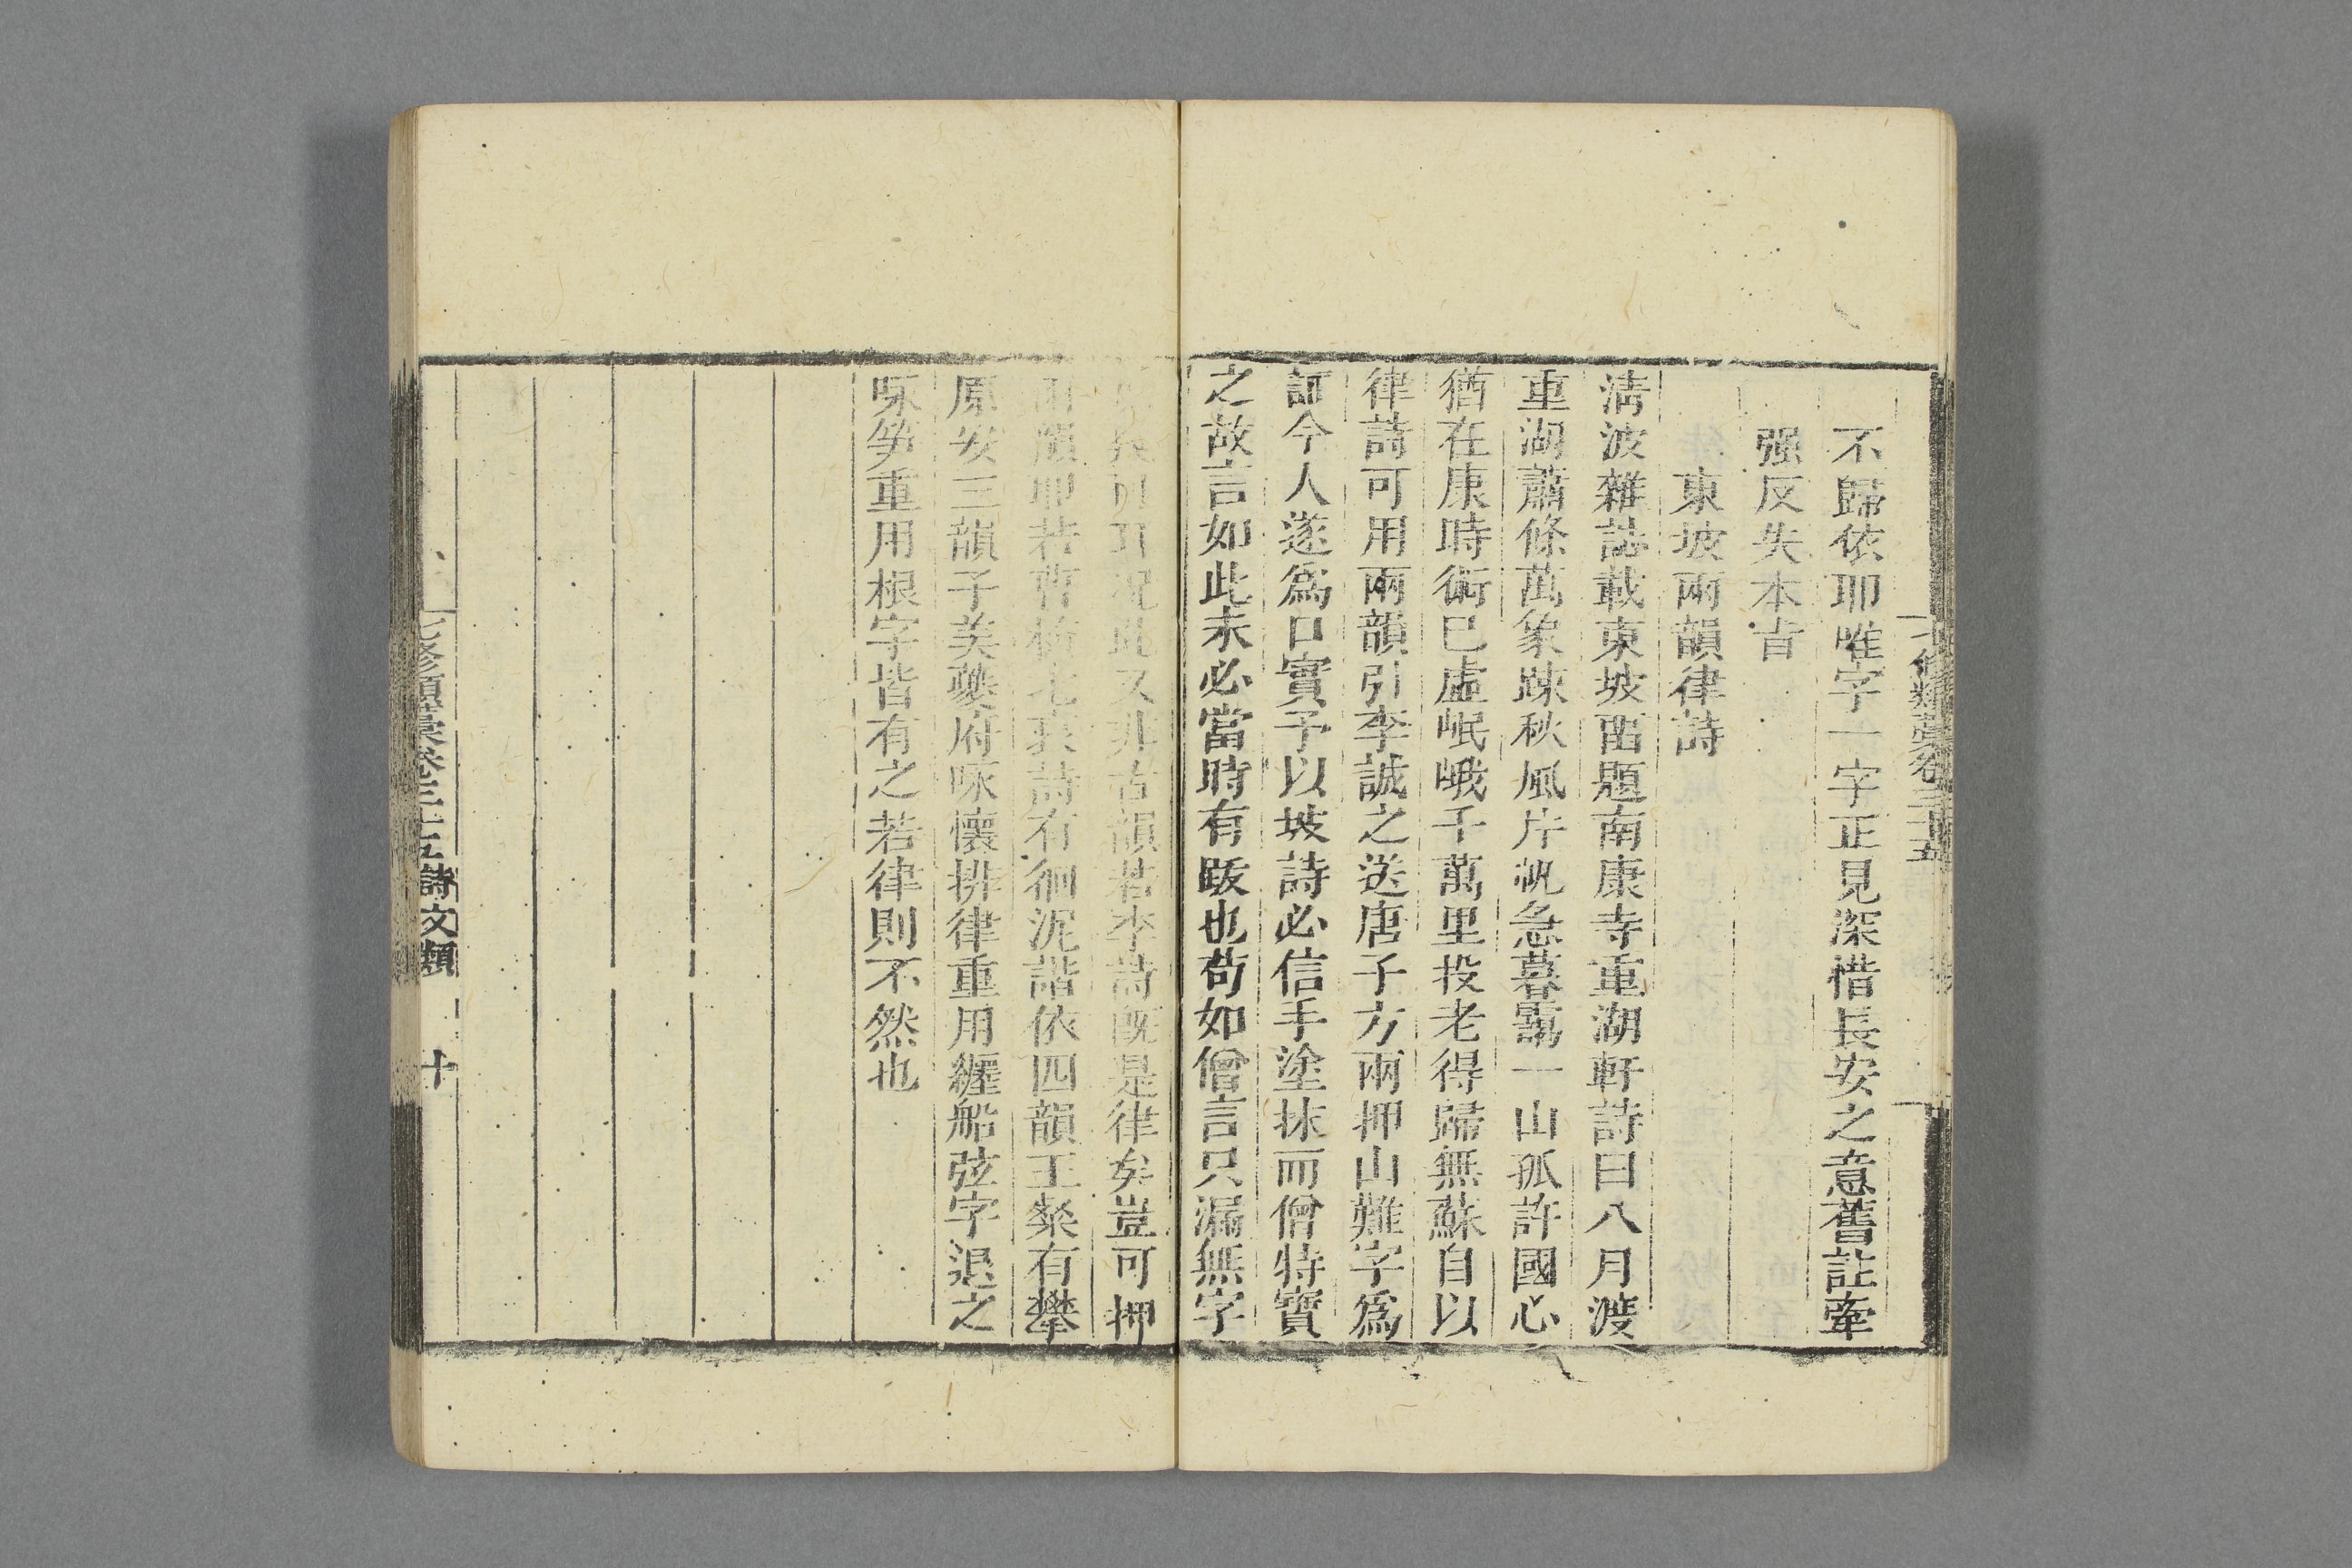 七修類藁卷三十五
不歸依耶唯字一字正見深惜長安之意舊註牽
强反失本旨
東坡兩韻律詩
清波雜誌載東坡畱題南康寺重湖軒詩曰八月渡
重湖蕭條萬象踈秋風片帆急暮靄一山孤許國心
猶在康時術已虛岷峨千萬里投老得歸無蘇自以
律詩可用兩韻引李誠之送唐子方兩押山難字爲
証今人遂爲口實予以坡詩必信手塗抹而僧特寶
之故言如此未必當時有跋也苟如僧言只漏無字
況此又非古韻若李詩既是律矣豈可押
兩韻耶若曹植七哀詩有徊泥諧依四韻王粲有攀
原安三韻子美夔府咏懷排律重用纏船弦字退之
咏笋重用根字皆有之若律則不然也
七修類藁卷三十五 詩文類 十